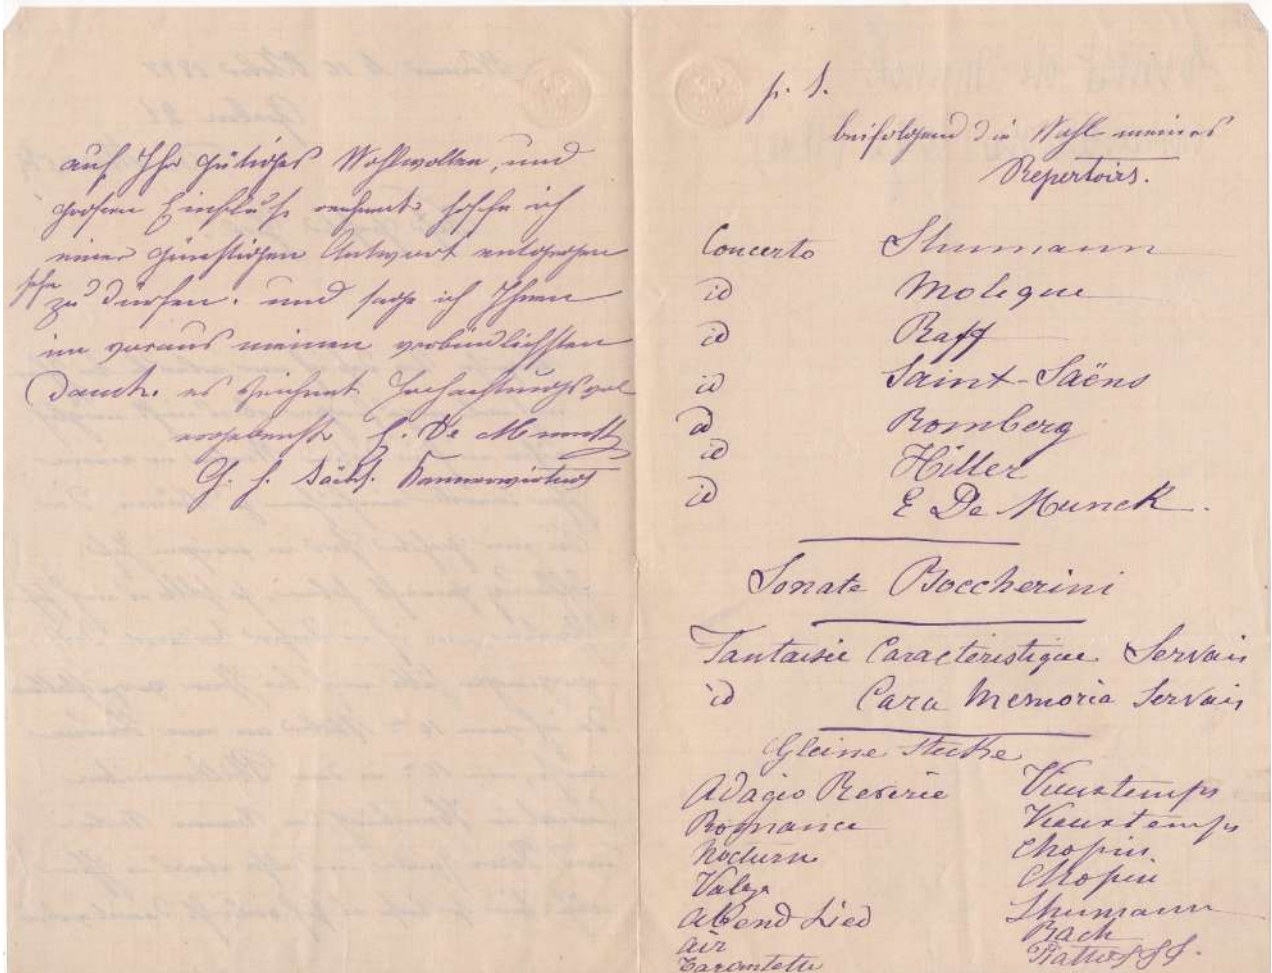 auf Ihr gütiges Wohlwollen, und
großen Einfluß rechnend hoffe ich
einer günstigen Antwort entgegen
sehn
zu dürfen. und sage ich Ihnen
im voraus meinen verbindlichsten
Danck. es zeichnet Hochachtungsvol
ergebenst E. De Munck
G. H. Sächs. Kammervirtuos
p. S.
beifolgend die Wahl meines
Repertoirs.
Concerto Shumann
id Molique
id Raff
id Saint-Saëns
id Romberg
id Hiller
id E De Munck.
Sonate Boccherini
Fantaisie Caracteristique Servais
id Cara Memoria Servais
Gleine Stucke
Adagio Reverie Vieuxtemps
Romance Vieuxtemps
Nocturne Chopin
Valse Chopin
Abend Lied Shumann
Air Bach